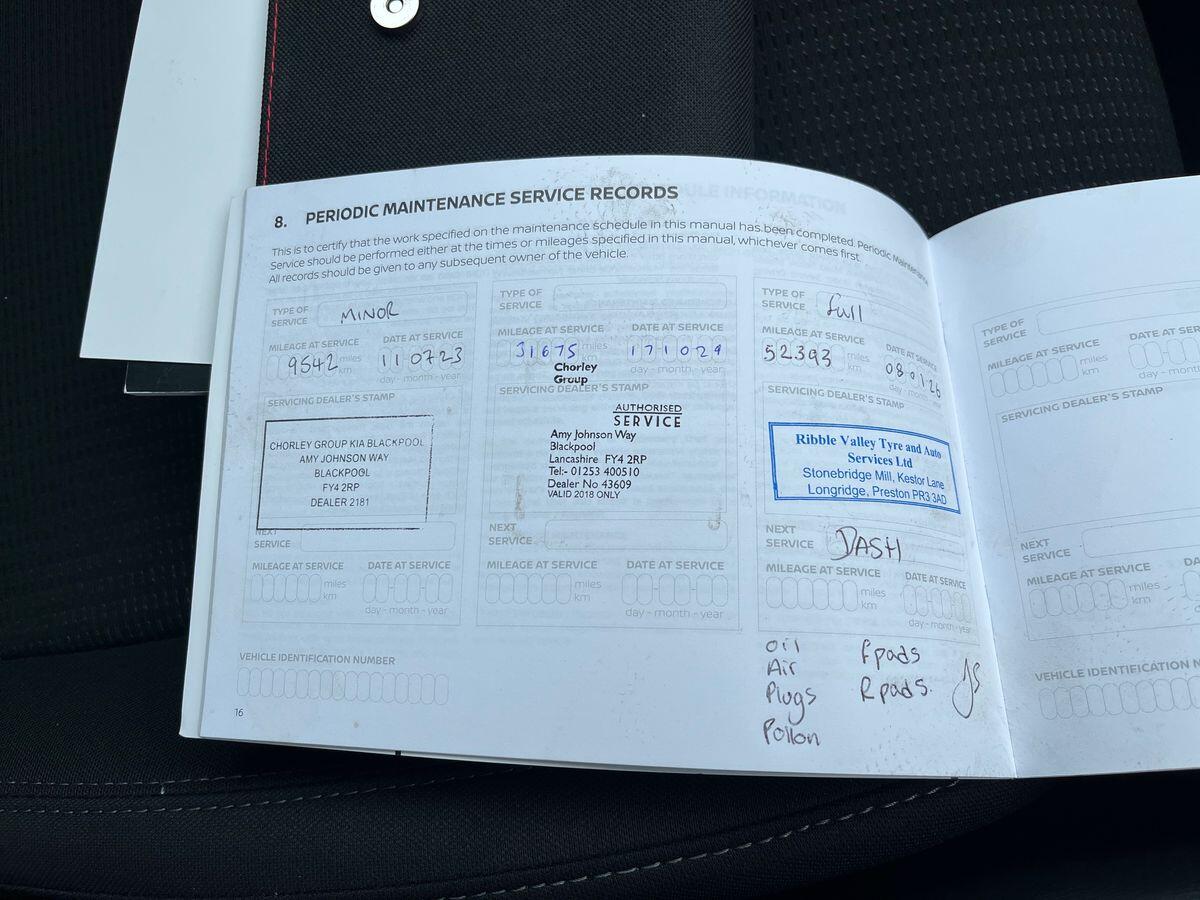 8. PERIODIC MAINTENANCE SERVICE RECORDS
This is to certify that the work specified on the maintenance schedule in this manual has been completed. Periodic Maintenance
Service should be performed either at the times or mileages specified in this manual, whichever comes first.
All records should be given to any subsequent owner of the vehicle.
TYPE OF
SERVICE
MINOR
MILEAGE AT SERVICE
DATE AT SERVICE
9542 miles
km
110723
day - month - year
SERVICING DEALER'S STAMP
CHORLEY GROUP KIA BLACKPOOL
AMY JOHNSON WAY
BLACKPOOL
FY4 2RP
DEALER 2181
NEXT
SERVICE
MILEAGE AT SERVICE
DATE AT SERVICE
miles
km
day - month - year
TYPE OF
SERVICE
MILEAGE AT SERVICE
DATE AT SERVICE
31675 miles
km
171024
day - month - year
Chorley
Group
SERVICING DEALER'S STAMP
AUTHORISED
SERVICE
Amy Johnson Way
Blackpool
Lancashire FY4 2RP
Tel:- 01253 400510
Dealer No 43609
VALID 2018 ONLY
NEXT
SERVICE
MILEAGE AT SERVICE
DATE AT SERVICE
miles
km
day - month - year
TYPE OF
SERVICE
full
MILEAGE AT SERVICE
DATE AT SERVICE
52393 miles
km
080126
day - month - year
SERVICING DEALER'S STAMP
Ribble Valley Tyre and Auto
Services Ltd
Stonebridge Mill, Kestor Lane
Longridge, Preston PR3 3AD
NEXT
SERVICE
DASH
MILEAGE AT SERVICE
DATE AT SERVICE
miles
km
day - month - year
Oil
Air
Plugs
Pollon
Fpads
Rpads.
JS
VEHICLE IDENTIFICATION NUMBER
16
TYPE OF
SERVICE
MILEAGE AT SERVICE
DATE AT SER
miles
km
SERVICING DEALER'S STAMP
NEXT
SERVICE
MILEAGE AT SERVICE
DA
miles
km
VEHICLE IDENTIFICATION N